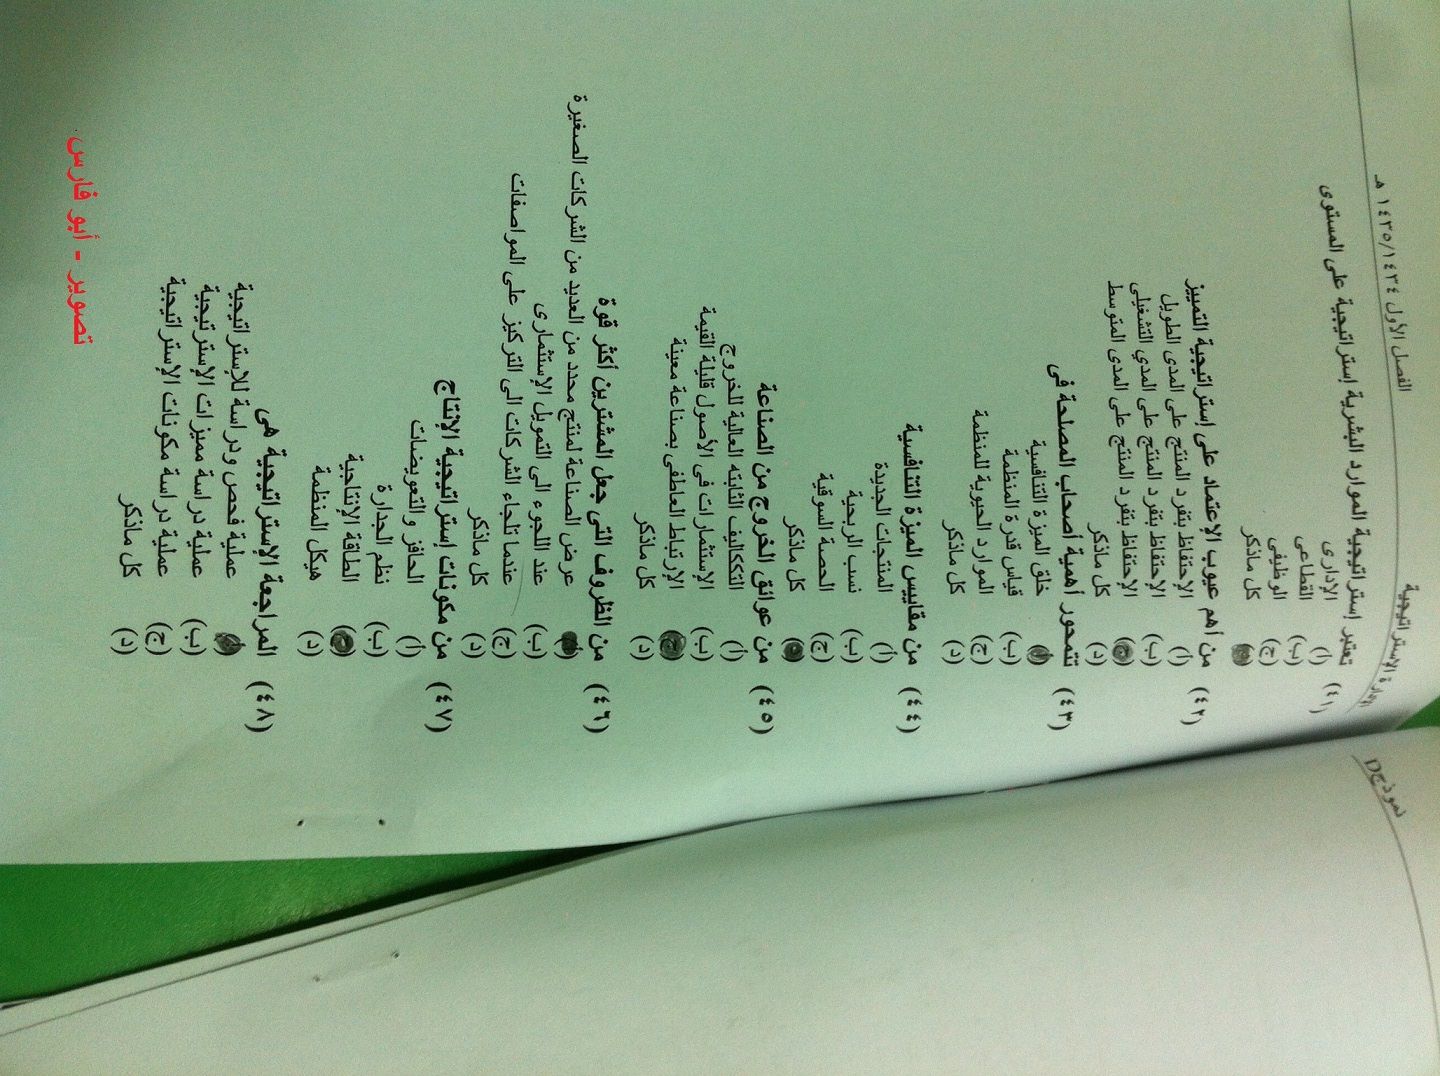 الإدارة الإستراتيجية
الفصل الأول ١٤٣٥/١٤٣٤ هـ
نموذج D
(٤١) تعتبر إستراتيجية الموارد البشرية إستراتيجية على المستوى
(أ) الإدارى
(ب) القطاعى
(ج) الوظيفى
كل ماذكر
(٤٢) من أهم عيوب الإعتماد على إستراتيجية التمييز
(أ) الإحتفاظ بتفرد المنتج على المدى الطويل
(ب) الإحتفاظ بتفرد المنتج على المدي التشغيلى
(ج) الإحتفاظ بتفرد المنتج على المدى المتوسط
(د) كل ماذكر
(٤٣) تتمحور أهمية أصحاب المصلحة فى
خلق الميزة التنافسية
(ب) قياس قدرة المنظمة
(ج) الموارد الحيوية للمنظمة
(د) كل ماذكر
(٤٤) من مقاييس الميزة التنافسية
(أ) المنتجات الجديدة
(ب) نسب الربحية
(ج) الحصة السوقية
كل ماذكر
(٤٥) من عوائق الخروج من الصناعة
(أ) التككاليف الثابته العالية للخروج
(ب) الإستثمارات فى الأصول قليلة القيمة
(ج) الإرتباط العاطفى بصناعة معينة
(د) كل ماذكر
(٤٦) من الظروف التى جعل المشترين أكثر قوة
عرض الصناعة لمنتج محدد من العديد من الشركات الصغيرة
(ب) عند اللجوء الى التمويل الإستثمارى
(ج) عندما تلجاء الشركات الى التركيز على المواصفات
(د) كل ماذكر
(٤٧) من مكونات إستراتيجية الإنتاج
(أ) الحافز والتعويضات
(ب) نظم الجدارة
(ج) الطاقة الإنتاجية
(د) هيكل المنظمة
(٤٨) المراجعة الإستراتيجية هى
عملية فحص ودراسة للإستراتيجية
(ب) عملية دراسة مميزات الإستراتيجية
(ج) عملية دراسة مكونات الإستراتيجية
(د) كل ماذكر
تصوير - أبو فارس